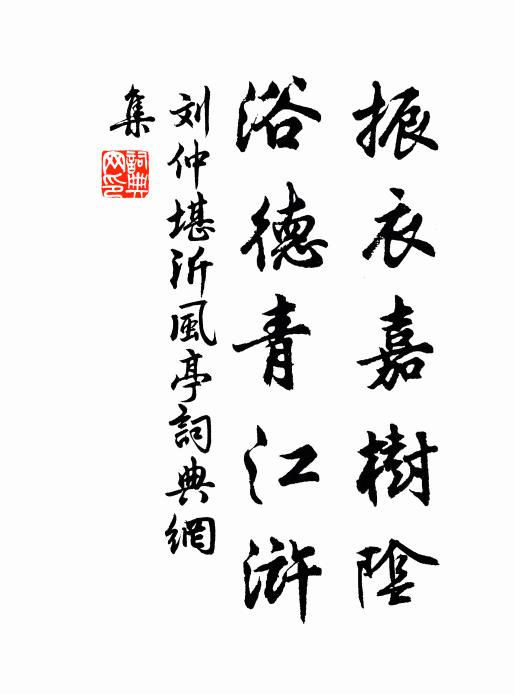 振衣嘉樹陰
浴德青江滸
刘仲堪沂風亭詞典網
集
詞典網印